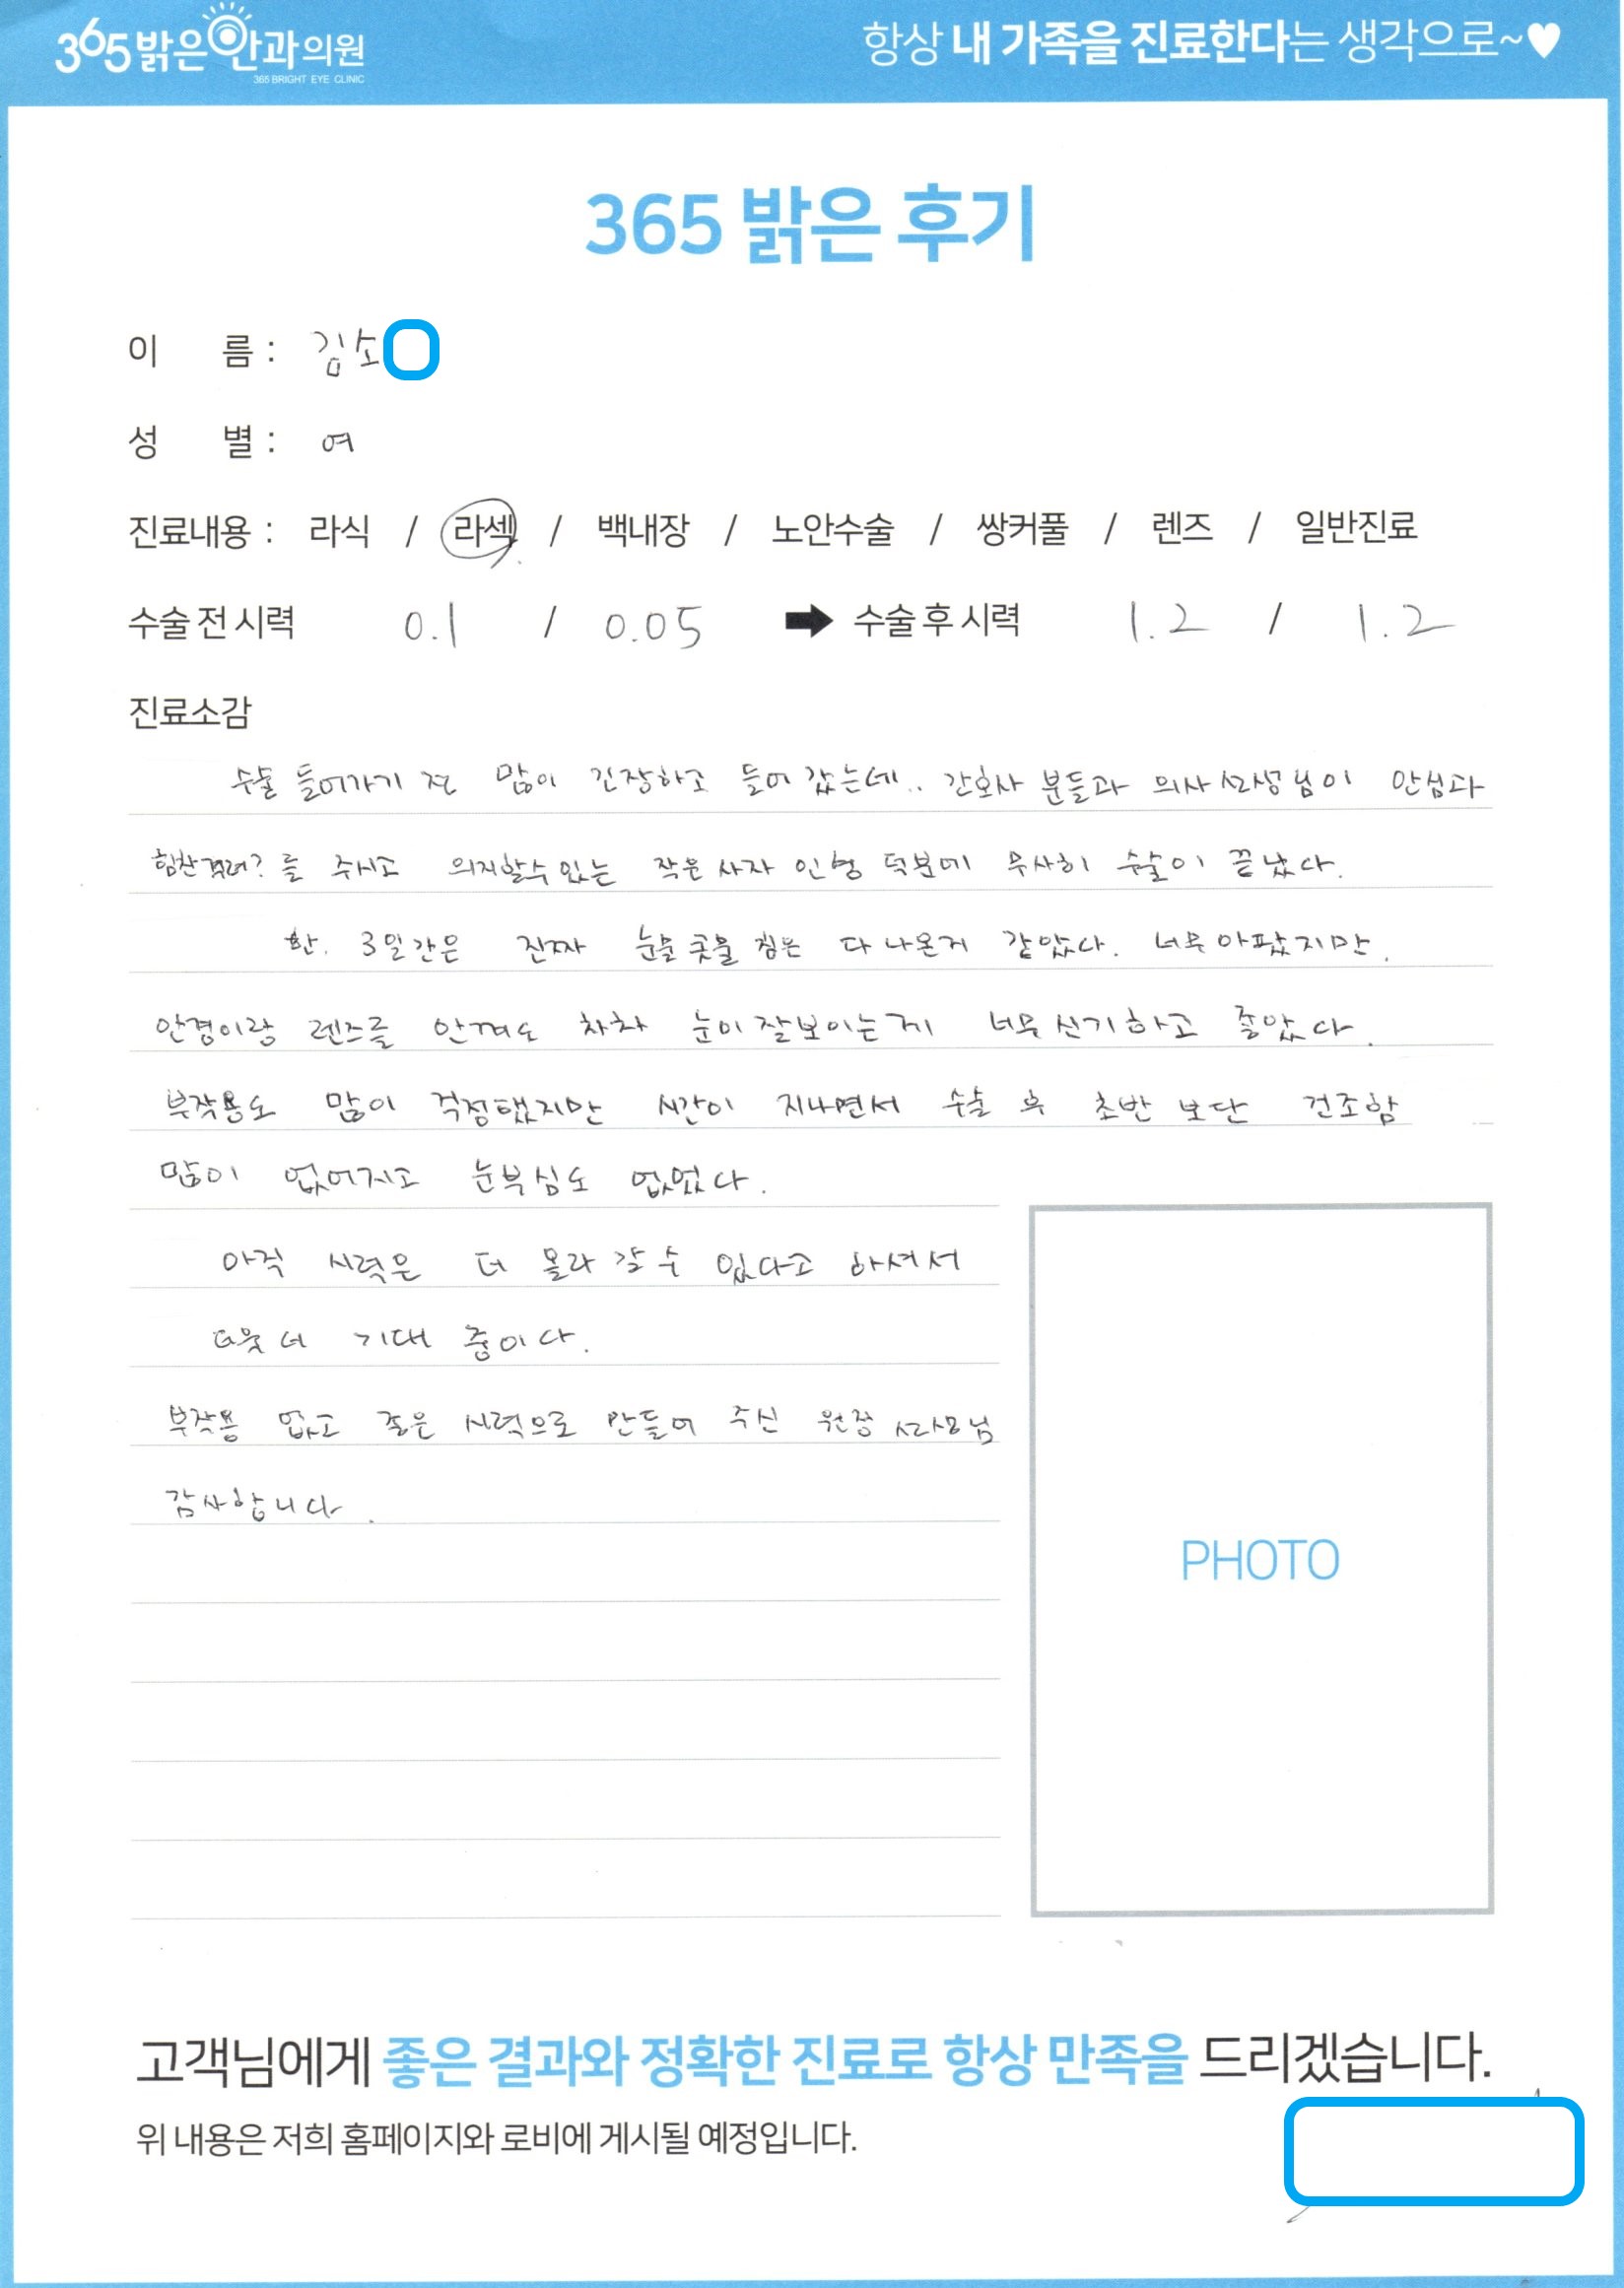 365밝은안과의원
365 BRIGHT EYE CLINIC
항상 내 가족을 진료한다는 생각으로~♥
365 밝은 후기
이 름 : 김소
성 별 : 여
진료내용 : 라식 / 라섹 / 백내장 / 노안수술 / 쌍커풀 / 렌즈 / 일반진료
수술 전 시력 0.1 / 0.05 ➡ 수술 후 시력 1.2 / 1.2
진료소감
수술 들어가기 전 많이 긴장하고 들어갔는데.. 간호사 분들과 의사선생님이 안심과
힘찬격려?를 주시고 의지할수있는 작은 사자 인형 덕분에 무사히 수술이 끝났다.
한. 3일간은 진짜 눈물 콧물 침은 다 나온거 같았다. 너무아팠지만.
안경이랑 렌즈를 안껴도 차차 눈이 잘보이는게 너무신기하고 좋았다.
부작용도 많이 걱정했지만 시간이 지나면서 수술 후 초반 보단 건조함
많이 없어지고 눈부심도 없었다.
아직 시력은 더 올라 갈 수 있다고 하셔서
더욱 더 기대 중이다.
부작용 없고 좋은 시력으로 만들어 주신 원장 선생님
감사합니다.
PHOTO
고객님에게 좋은 결과와 정확한 진료로 항상 만족을 드리겠습니다.
위 내용은 저희 홈페이지와 로비에 게시될 예정입니다.